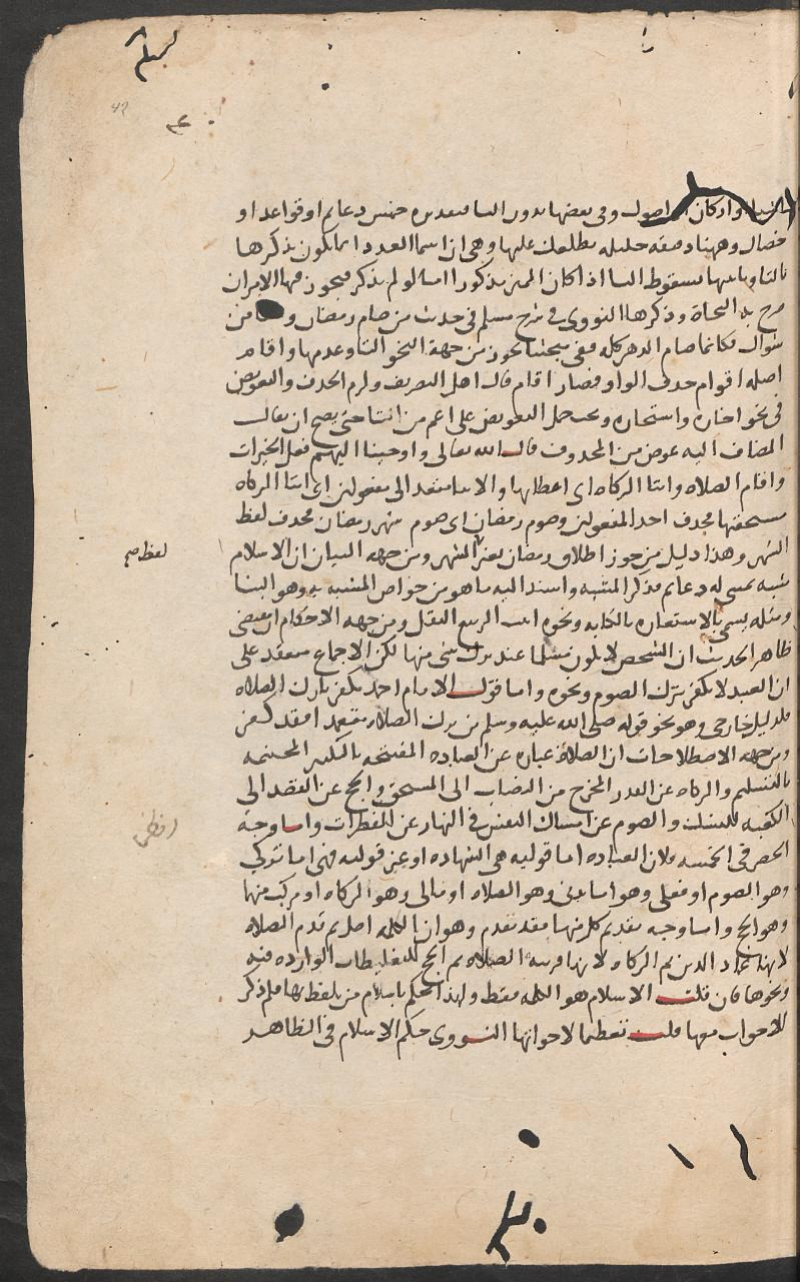 اشياء واركان اصول وفي بعضها بدون التا فتقديره خمس دعايم او قواعد او
خصال وههنا دقيقه جليله نطلعك عليها وهي ان اسما العدد انما يكون تذكيرها
بالتا وتانيثها بسقوط التا اذا كان المميز مذكورا اما لو لم يذكر فيجوز فيها الامران
صرح به النحاة وذكرها النووي في شرح مسلم في حديث من صام رمضان و ستا من
شوال فكانما صام الدهر كله ففي مبحثنا يجوز من جهة النحو التا وعدمها واقام
اصله اقوام حذف الواو فصار اقام قال اهل التصريف ولزم الحذف والتعويض
في نحو اجازه واستجازه ويجب حمل التعويض على اعم من التا حتى يصح ان يقال
المضاف اليه عوض من المحذوف قال الله تعالى واوحينا اليهم فعل الخيرات
واقام الصلاه وايتا الزكاه اي اعطايها والايتا متعد الى مفعولين اي ايتا الزكاه
مستحقها فحذف احد المفعولين وصوم رمضان اي صوم شهر رمضان فحذف لفظ
الشهر وهذا دليل من جوز اطلاق رمضان بغير الشهر ومن جهه البيان ان الاسلام
لفظ صح
شبه بمبنى له دعايم فذكر المشبه واسند اليه ما هو من خواص المشبه به وهو البنا
ومثله يسمى بالاستعاره بالكنايه ونحوه انبت الربيع البقل ومن جهه الاحكام ان مقتضى
ظاهر الحديث ان الشخص لا يكون مسلما عند ترك شي منها لكن الاجماع منعقد على
ان العبد لا يكفر بترك الصوم ونحوه واما قول الامام احمد بكفر تارك الصلاه
فلدليل خارجي وهو نحو قوله صلى الله عليه وسلم من ترك الصلاه متعمدا فقد كفر
ومن جهه الاصطلاحات ان الصلاة عباره عن العباده المفتتحه بالتكبير المختتمه
بالتسليم والزكاه عن القدر المخرج من النصاب الى المستحق والحج عن القصد الى
الكعبه للنسك والصوم عن امساك النفس في النهار عن المفطرات واما وجه
الحصر في الخمسه فلان العباده اما قوليه هي الشهاده او غير قوليه فهي اما تركي
وهو الصوم او فعلي وهو اما بدني وهو الصلاه او مالي وهو الزكاه او مركب منها
وهو الحج واما وجه تقديم كل منها فقد تقدم وهو ان الكلمه اصل ثم قدم الصلاه
لانها عماد الدين ثم الزكاه لانها قرينه الصلاه ثم الحج للتغليظات الوارده فيه
ونحوها فان قلت الاسلام هو الكلمه فقط ولهذا نحكم باسلام من تلفظ بها فلم ذكر
الاخوات معها قلت تعظيما لاخواتها النووي حكم الاسلام في الظاهر